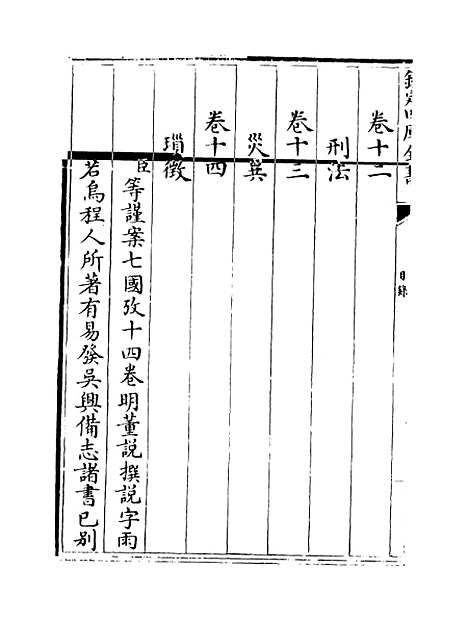 欽定四庫全書
目錄
卷十二
刑法
卷十三
災異
卷十四
瑣徵
臣等謹案七國攷十四卷明董説撰説字雨
若烏程人所著有易發吳興備志諸書已别